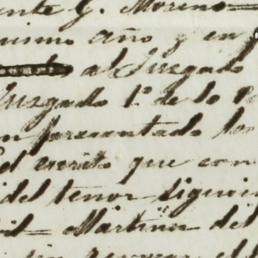 ente G. Moreno
ismo año y en
al Juzgado
Juzgado 1º de lo
presentado los
el escrito que con
del tenor siguien
Martinez del